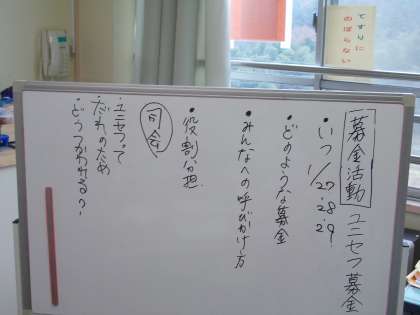 てすりに
のぼらない
募金活動 ユニセフ募金
・いつ 1/27.28.29.
・どのような募金
・みんなへの呼びかけ方
・役割分担
司会
・ユニセフって
だれのため
どうつかわれる?